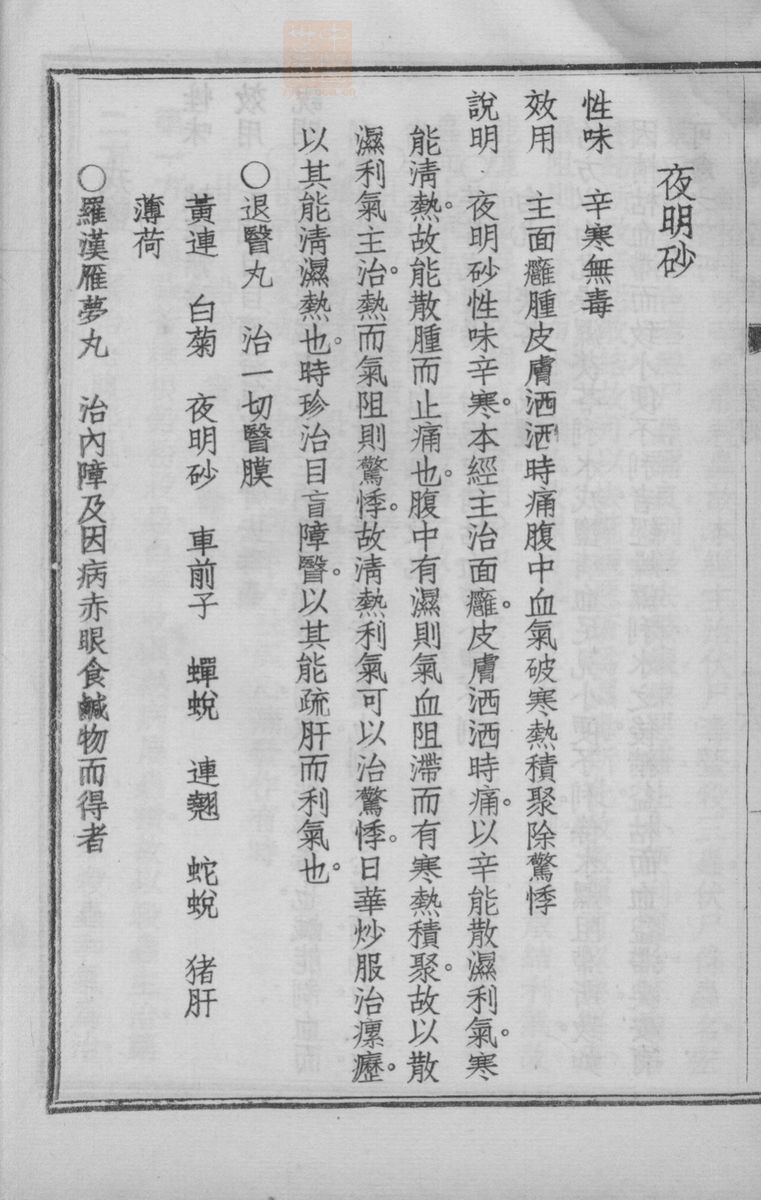 夜明砂
性味　辛寒無毒
效用　主面癰腫皮膚洒洒時痛腹中血氣破寒熱積聚除驚悸
說明　夜明砂性味辛寒。本經主治面癰。皮膚洒洒時痛。以辛能散濕利氣。寒
能清熱。故能散腫而止痛也。腹中有濕則氣血阻滯而有寒熱積聚。故以散
濕利氣主治。熱而氣阻則驚悸。故清熱利氣可以治驚悸。日華炒服治瘰癧。
以其能淸濕熱也。時珍治目盲障醫。以其能疏肝而利氣也。
○退醫丸　治一切醫膜
黃連　白菊　夜明砂　車前子　蟬蛻　連翹　蛇蛻　猪肝
薄荷
○羅漢雁夢丸　治內障及因病赤眼食鹹物而得者